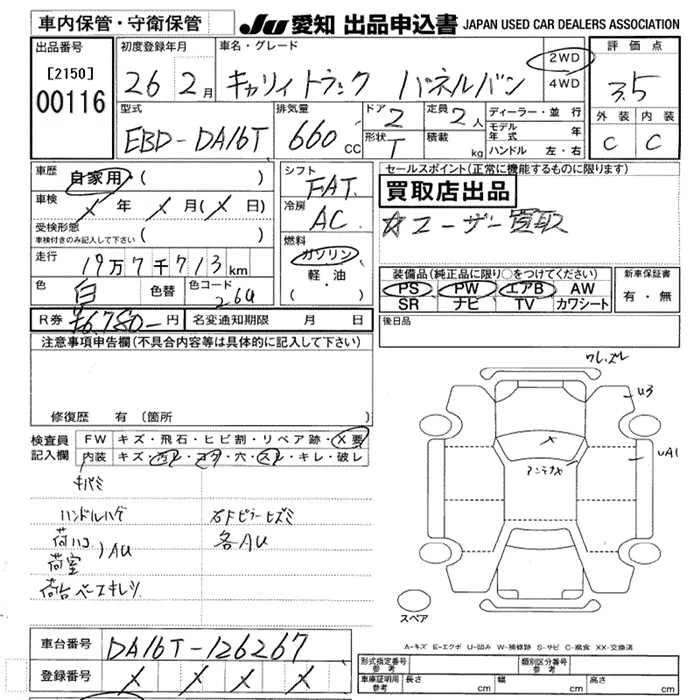 車内保管・守衛保管
JU 愛知 出品申込書 JAPAN USED CAR DEALERS ASSOCIATION
出品番号
[2150]
00116
初度登録年月
26 2月
車名・グレード
キャリィトラック パネルバン
2WD
4WD
評価点
3.5
外装 内装
C C
型式
EBD-DA16T
排気量
660 cc
ドア 2
形状 T
定員 2人
積載 kg
ディーラー・並行
モデル年式 年
ハンドル 左・右
車歴
自家用・( )
車検
X 年 X 月(X 日)
受検形態
車検付きのみ記入して下さい ( )
走行
19万7千713km
色
白 色替 色コード 26U
R券 ¥6,780- 円 名変通知期限 月 日
シフト
FAT
冷房
AC
燃料
ガソリン
軽・油
( ・ )
セールスポイント(正常に機能するものに限ります)
買取店出品
☆ユーザー買取
装備品(純正品に限り○をつけてください)
PS PW エアB AW
SR ナビ TV カワシート
新車保証書
有・無
後日品
注意事項申告欄(不具合内容等は具体的に記入して下さい)
修復歴 有(箇所 )
検査員記入欄
FW キズ・飛石・ヒビ割・リペア跡・X要
内装 キズ・汚レ・コゲ・穴・スレ・キレ・破レ
キバミ
ハンドルハゲ
荷ハコ
荷室
)AU
荷台ベースキレツ
右Fピラーヒズミ
各AU
ワレ、ズレ
U3
UA1
X
アンテナX
スペア
A-キズ E-エクボ U-凹み W-補修跡 S-サビ C-腐食 XX-交換済
車台番号 DA16T-126267
登録番号 X X X X
形式指定番号 参考
類別区分番号 参考
車庫証明用 参考 長さ cm 幅 cm 高さ cm